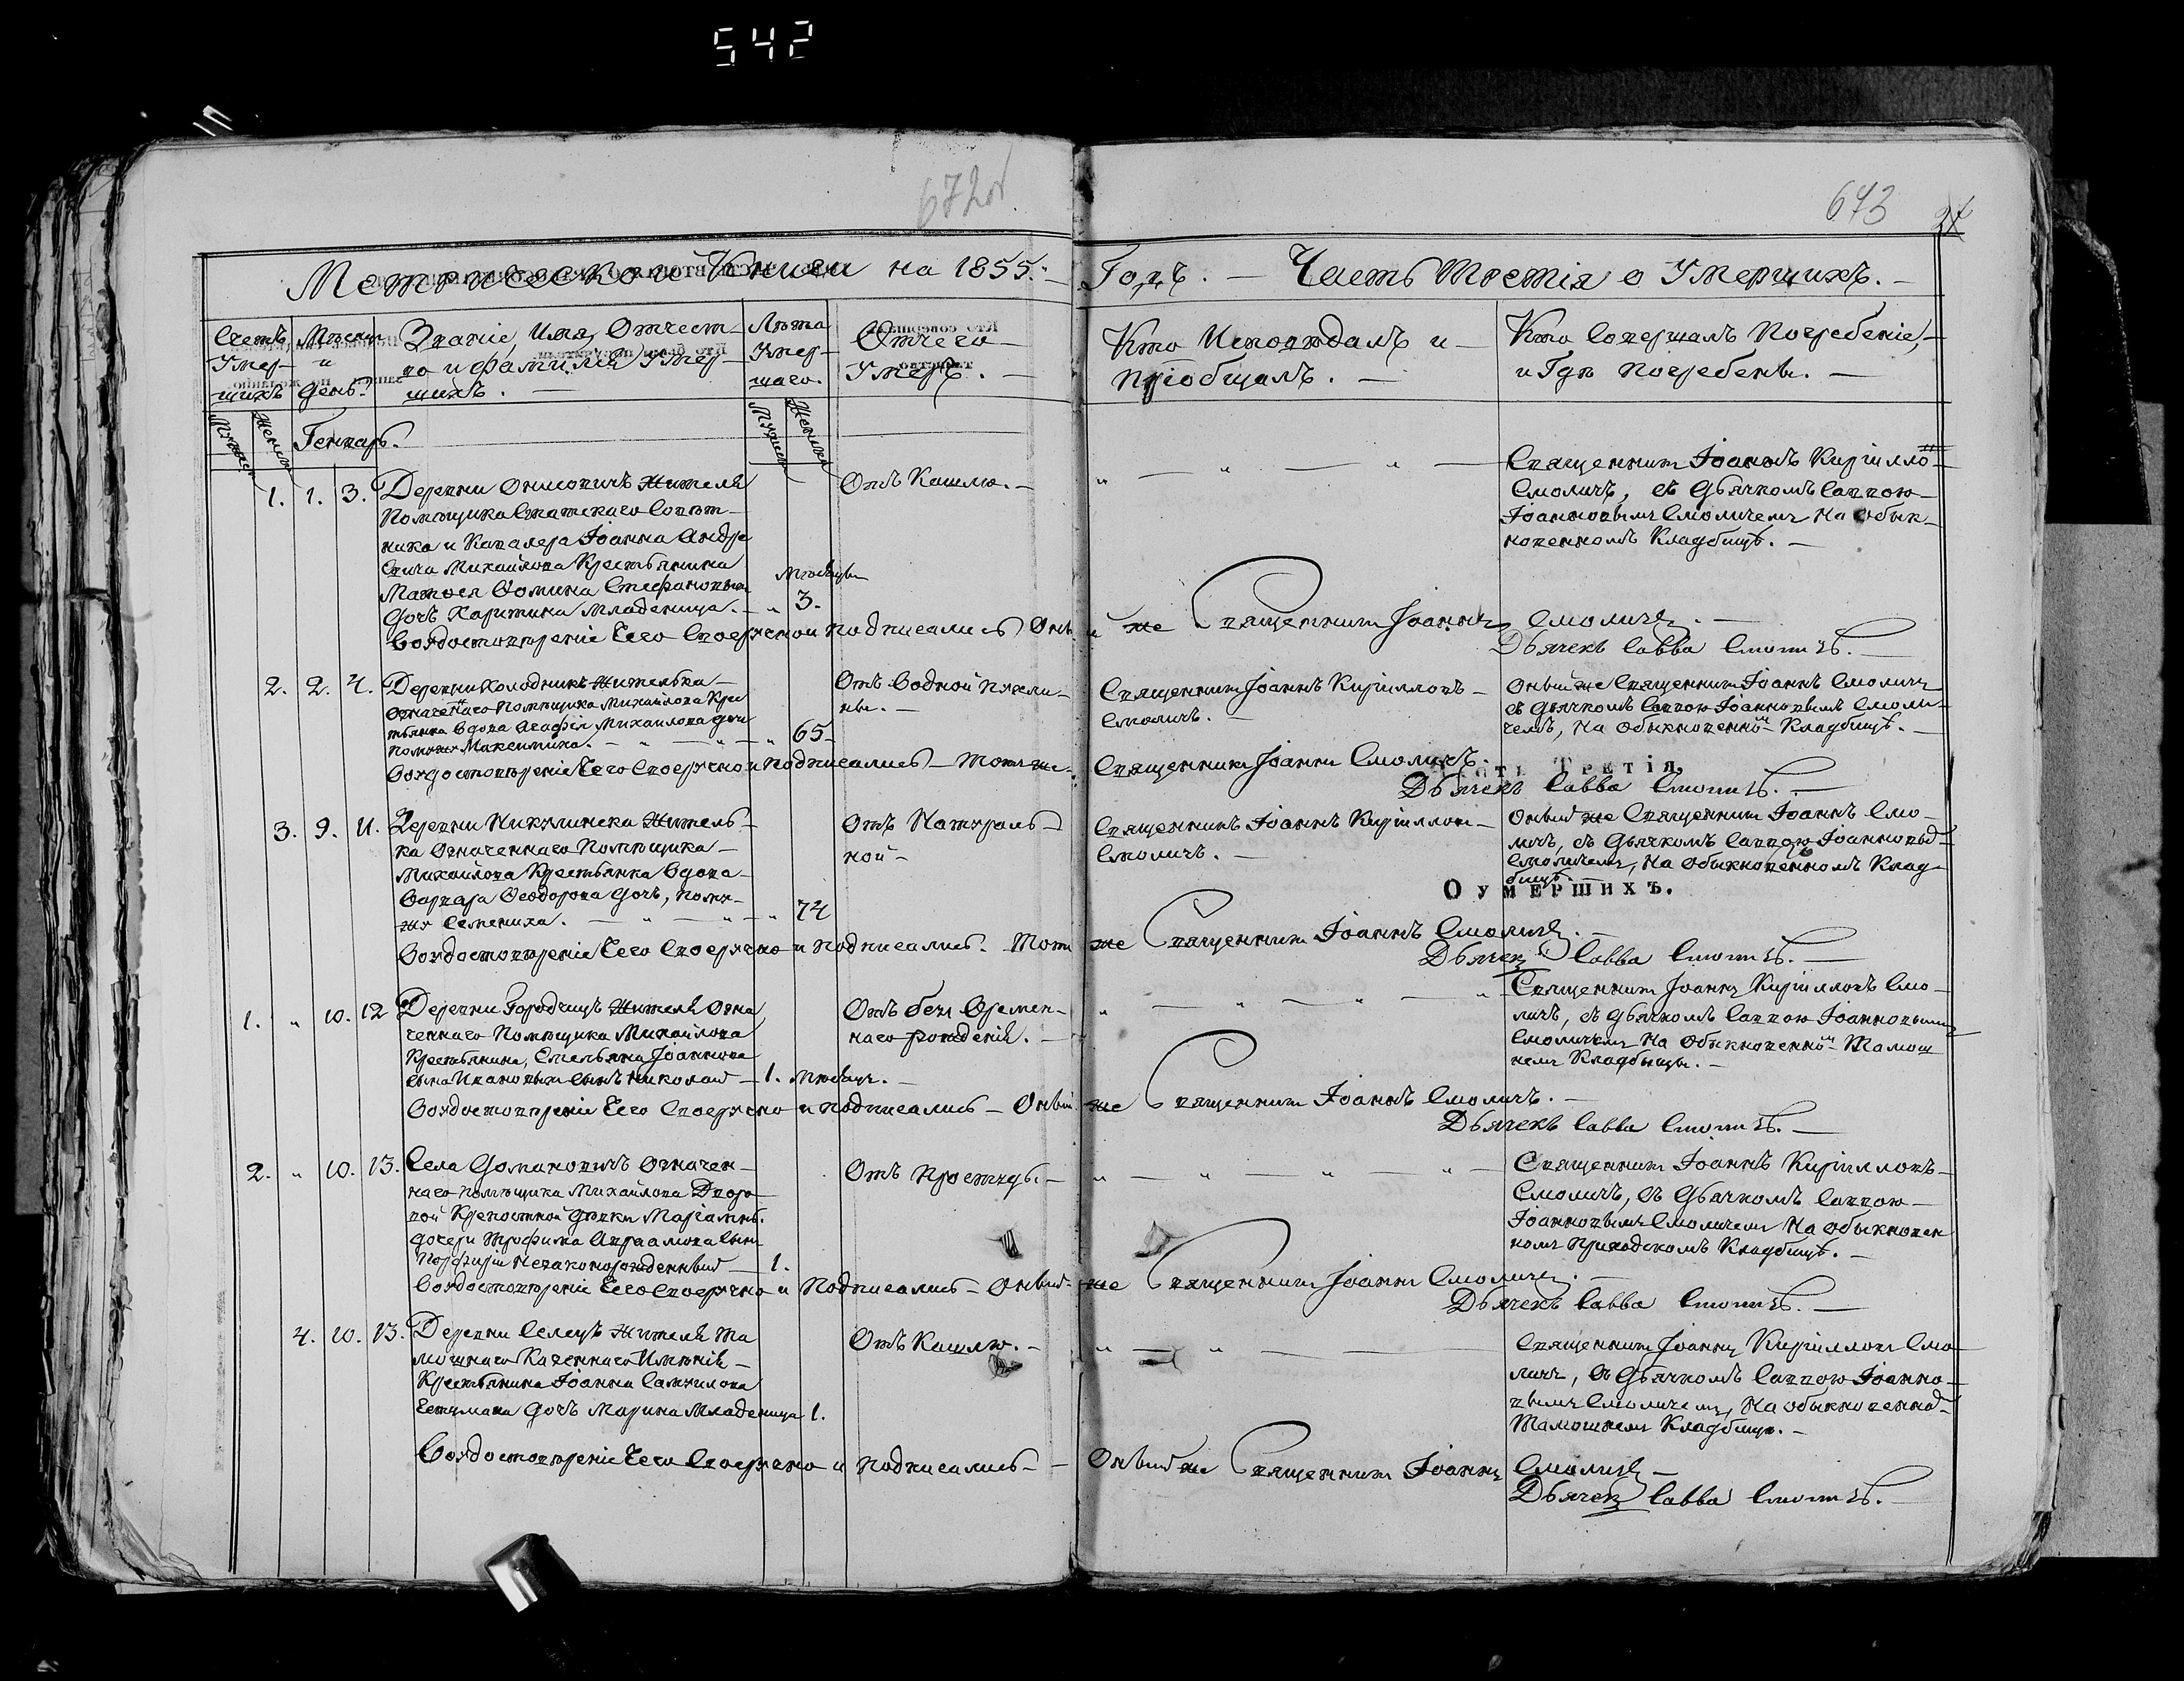 542
672об
673
Метрической Книги на 1855. Годъ. — Часть Третія о Умершихъ. —
Счетъ Умер-
шихъ
Мѣсяц
и
День.
Званіе, Имя, Отчест-
во и фамилія Умер-
шихъ. —
Лѣта
Умер-
шаго.
Отчего
Умеръ. —
Кто Исповѣдалъ и —
Пріобщалъ. —
Кто Совершалъ Погребеніе, —
и Гдѣ Погребены. —
Генварь.
1. 1. 3.
Деревни Жителя
Помѣщика Статскаго Совѣт-
ника и Кавалера Іоанна Андре
евича Михайлова Крестьянина
Матвея Фомина Стефановича
дочь Харитина Младенца. — „ 3.
Отъ Кашлю. —
Священникъ Іоаннъ Кирилло
Смоличъ, съ Дьячкомъ Саввою —
Іоанновымъ Смоличемъ На Обык-
новенномъ Кладбищѣ. —
Воудостовѣреніе Сего Своеручно и Подписались Оный же Священникъ Іоаннъ Смоличъ. —
Дьячекъ Савва Смоличъ. —
2. 2. 4.
Деревни Колодникъ Жителька —
Означеннаго Помѣщика Михайлова Крес
тьянка Вдова Агафія Михайлова дочь
Помужу Максимиха. — „ — „ — „ 65
Отъ Водной Пухли-
ны. —
Священникъ Іоаннъ Кирилловъ —
Смоличъ. —
Оный же Священникъ Іоаннъ Смоличъ
съ Дьячкомъ Саввою Іоанновымъ Смоли-
чемъ, На Обыкновенно Кладбищѣ. —
Воудостовѣреніе Сего Своеручно и Подписались — Тотъ же — Священникъ Іоаннъ Смоличъ.
Часть Третія,
Дьячекъ Савва Смоличъ. —
3. 9. 11.
Деревни Житель-
ка Означеннаго Помѣщика —
Михайлова Крестьянка Вдова —
Варвара Феодорова дочь, Пому-
жу Семениха. — „ — „ — „ 74
Отъ Натураль-
ной —
Священникъ Іоаннъ Кирилловъ —
Смоличъ. —
Оный же Священникъ Іоаннъ Смо-
личъ, съ Дьячкомъ Саввою Іоанновы
Смоличемъ, На Обыкновенномъ Клад-
бищѣ. —
О умершихъ.
Воудостовѣреніе Сего Своеручно и Подписались. Тотъ же Священникъ Іоаннъ Смоличъ. —
Дьячекъ Савва Смоличъ. —
1. „ 10. 12
Деревни Городищъ Жителя Озна
ченнаго Помѣщика Михайлова
Крестьянина, Емельяна Іоаннова
сына Иванова сынъ Николай — 1. Мѣсяцъ. —
Отъ без Времен-
наго рожденія. —
Священникъ Іоаннъ Кирилловъ Смо-
личъ, съ Дьячкомъ Саввою Іоанновымъ
Смоличемъ На Обыкновенно Тамош
немъ Кладбищѣ. —
Воудостовѣреніе Сего Своеручно и Подписались — Оный же Священникъ Іоаннъ Смоличъ. —
Дьячекъ Савва Смоличъ. —
2. „ 10. 13.
Села Домановичъ Означен-
наго Помѣщика Михайлова Дворо-
вой Крепостной дѣвки Маріанны.
дочери Трофима Авраамова сынъ
Порфирій Незаконорожденный — 1.
Отъ Простуды. —
Священникъ Іоаннъ Кирилловъ —
Смоличъ, съ Дьячкомъ Саввою —
Іоанновымъ Смоличемъ На Обыкновен
номъ Приходскомъ Кладбищѣ. —
Воудостовѣреніе Сего Своеручно и Подписались — Оный же Священникъ Іоаннъ Смоличъ. —
Дьячекъ Савва Смоличъ. —
4. 10. 13.
Деревни Селецъ Жителя Та
мошнаго Казеннаго Имѣнія —
Крестьянина Іоанна Самуилова
дочь Марина Младенца 1.
Отъ Кашлю. —
Священникъ Іоаннъ Кирилловъ Смо
личъ, съ Дьячкомъ Саввою Іоанно-
вымъ Смоличемъ, На Обыкновенно
Тамошнемъ Кладбищѣ. —
Воудостовѣреніе Сего Своеручно и Подписались — Оный же Священникъ Іоаннъ Смоличъ —
Дьячекъ Савва Смоличъ. —